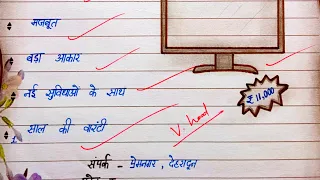 मजबूत
बड़ा आकार
नई सुविधाओं के साथ
₹ 11,000
1 साल की वारंटी
V. Good
संपर्क - प्रेमनगर, देहरादून